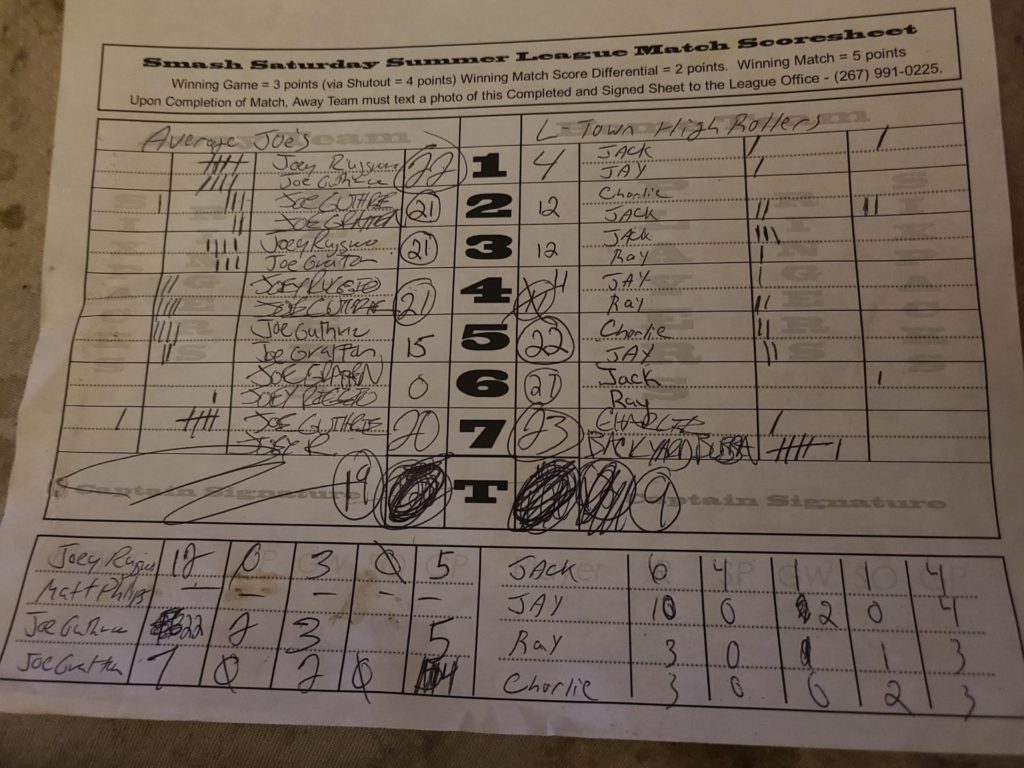 Smash Saturday Summer League Match Scoresheet
Winning Game = 3 points (via Shutout = 4 points) Winning Match Score Differential = 2 points. Winning Match = 5 points
Upon Completion of Match, Away Team must text a photo of this Completed and Signed Sheet to the League Office - (267) 991-0225.
Average Joe's L-Town High Rollers
Joey 22 1 4 JACK
Joe Guthrie JAY
JOE GUTHRIE 21 2 12 Charlie
JOE GRATTEN JACK
Joey 21 3 12 JACK
Joe Gratten Ray
JOEY 21 4 4 JAY
JOE GUTHRIE Ray
Joe Guthrie 15 5 22 Charlie
Joe Gratten JAY
JOE GRATTEN 0 6 21 Jack
JOEY Ray
JOE GUTHRIE 20 7 23 CHARLIE
JOEY R.
Captain Signature 19 T 9 Captain Signature
Joey 12 0 3 0 5 JACK 6 4 1 1 4
Matt Philps — — — — — JAY 10 0 2 0 4
Joe Guthrie 22 2 3 5 Ray 3 0 1 3
Joe Gratten 7 0 2 0 4 Charlie 3 0 0 2 3